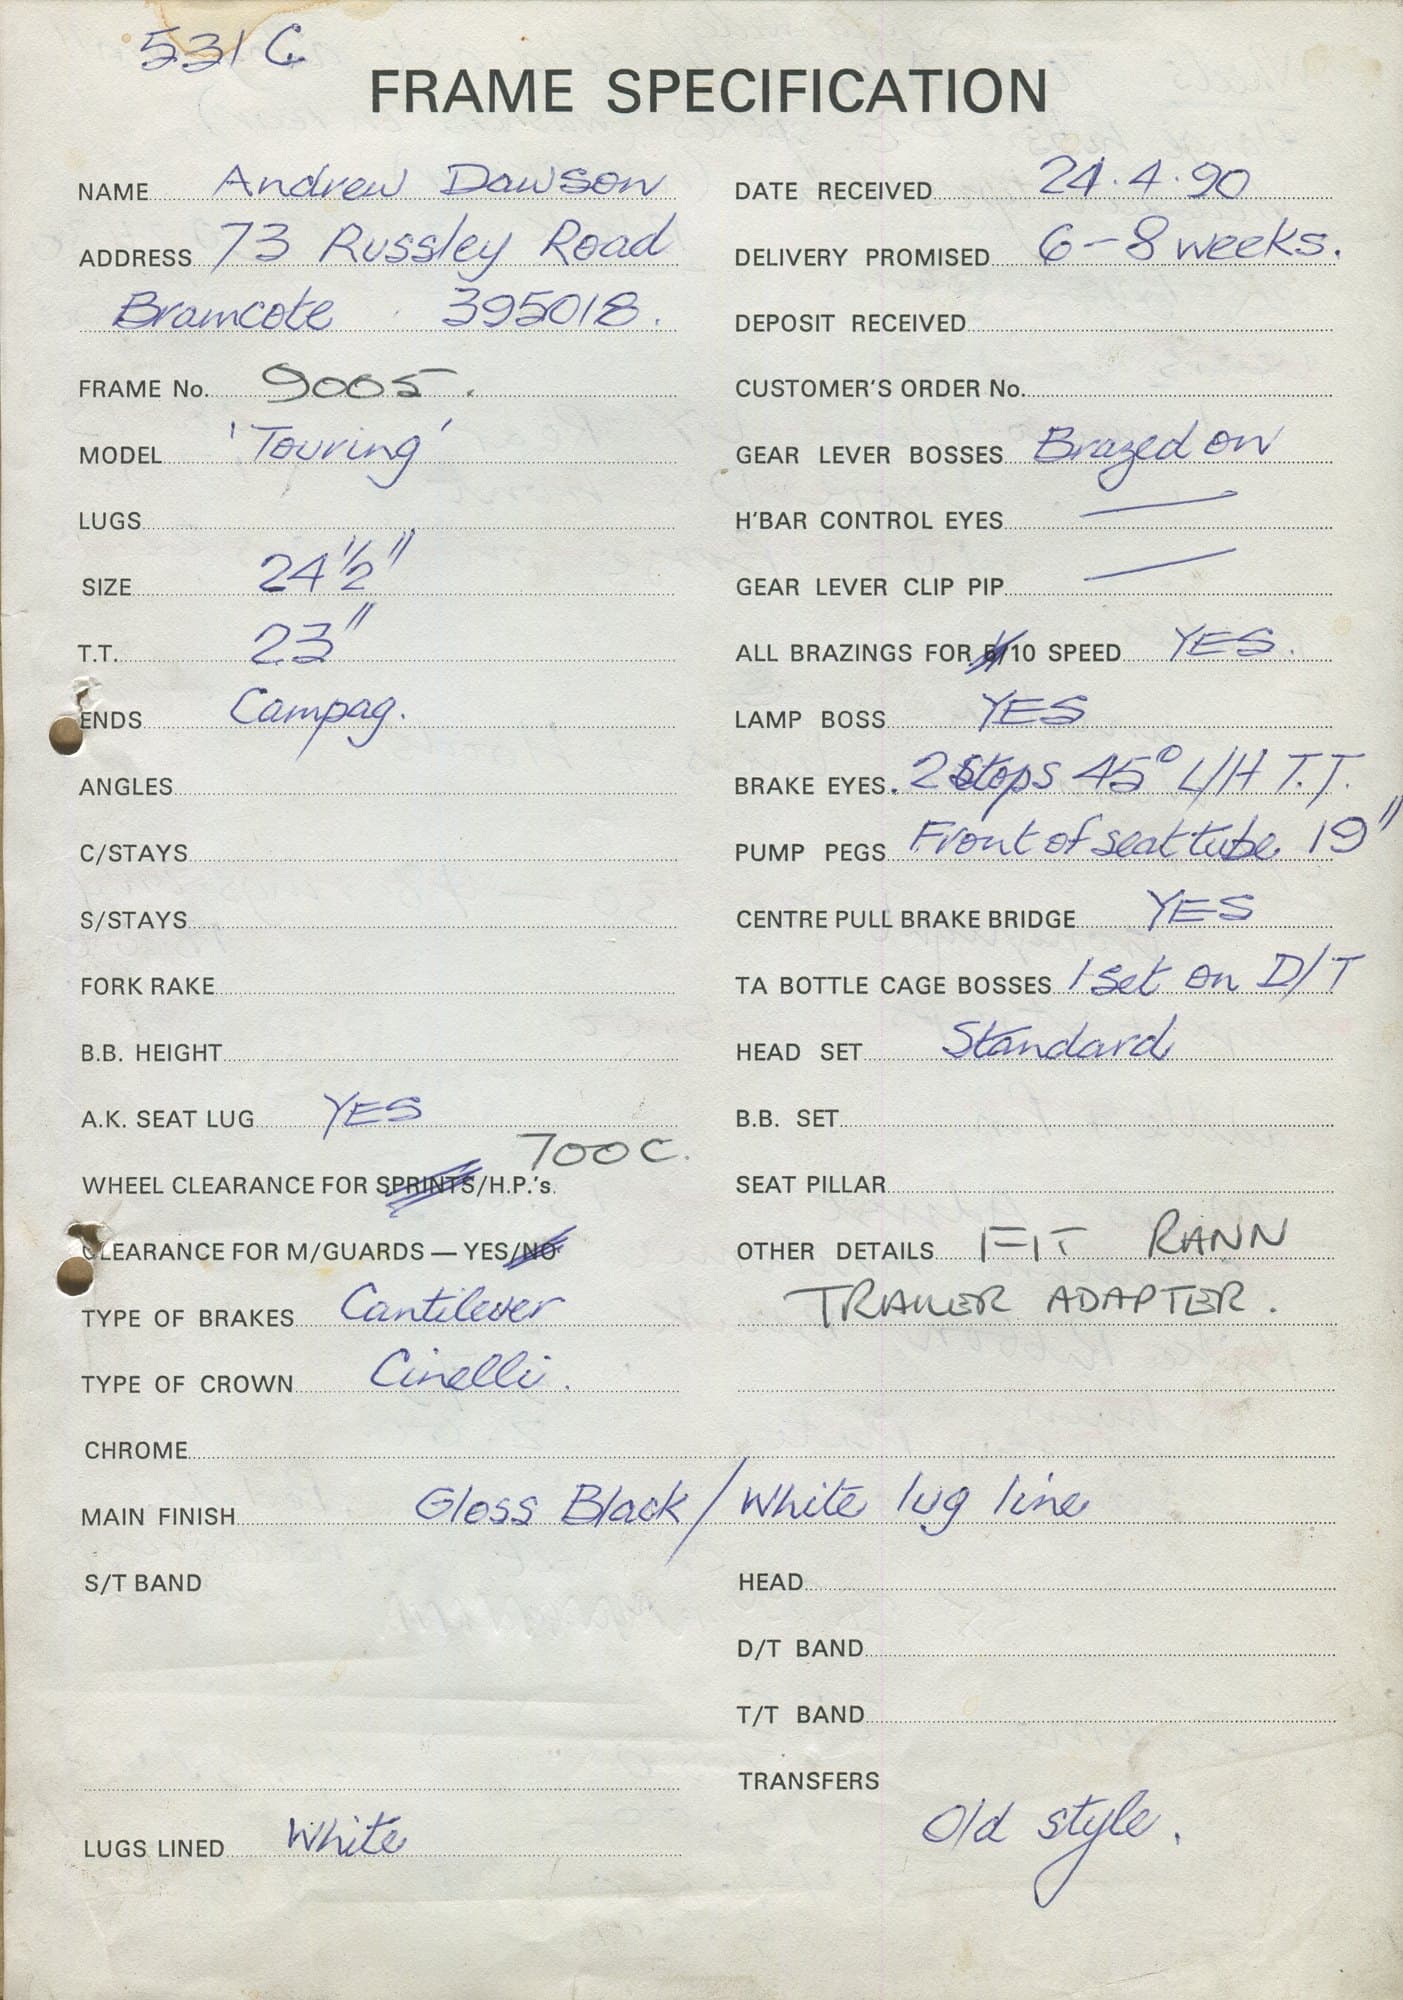 531 C
FRAME SPECIFICATION
NAME Andrew Dawson
ADDRESS 73 Russley Road
Bramcote 395018.
FRAME No. 9005.
MODEL 'Touring'
LUGS
SIZE 24 1/2"
T.T. 23"
ENDS Campag.
ANGLES
C/STAYS
S/STAYS
FORK RAKE
B.B. HEIGHT
A.K. SEAT LUG YES
700C.
WHEEL CLEARANCE FOR SPRINTS/H.P.'s.
CLEARANCE FOR M/GUARDS — YES/NO
TYPE OF BRAKES Cantilever
TYPE OF CROWN Cinelli.
DATE RECEIVED 24.4.90
DELIVERY PROMISED 6-8 weeks.
DEPOSIT RECEIVED
CUSTOMER'S ORDER No.
GEAR LEVER BOSSES Brazed on
H'BAR CONTROL EYES —
GEAR LEVER CLIP PIP —
ALL BRAZINGS FOR 5/10 SPEED YES.
LAMP BOSS YES
BRAKE EYES. 2 Stops 45° L/H T.T.
PUMP PEGS Front of seat tube 19"
CENTRE PULL BRAKE BRIDGE YES
TA BOTTLE CAGE BOSSES 1 set on D/T
HEAD SET Standard
B.B. SET
SEAT PILLAR
OTHER DETAILS FIT RANN
TRAILER ADAPTER.
CHROME
MAIN FINISH Gloss Black / White lug line
S/T BAND
LUGS LINED White
HEAD
D/T BAND
T/T BAND
TRANSFERS
Old style.